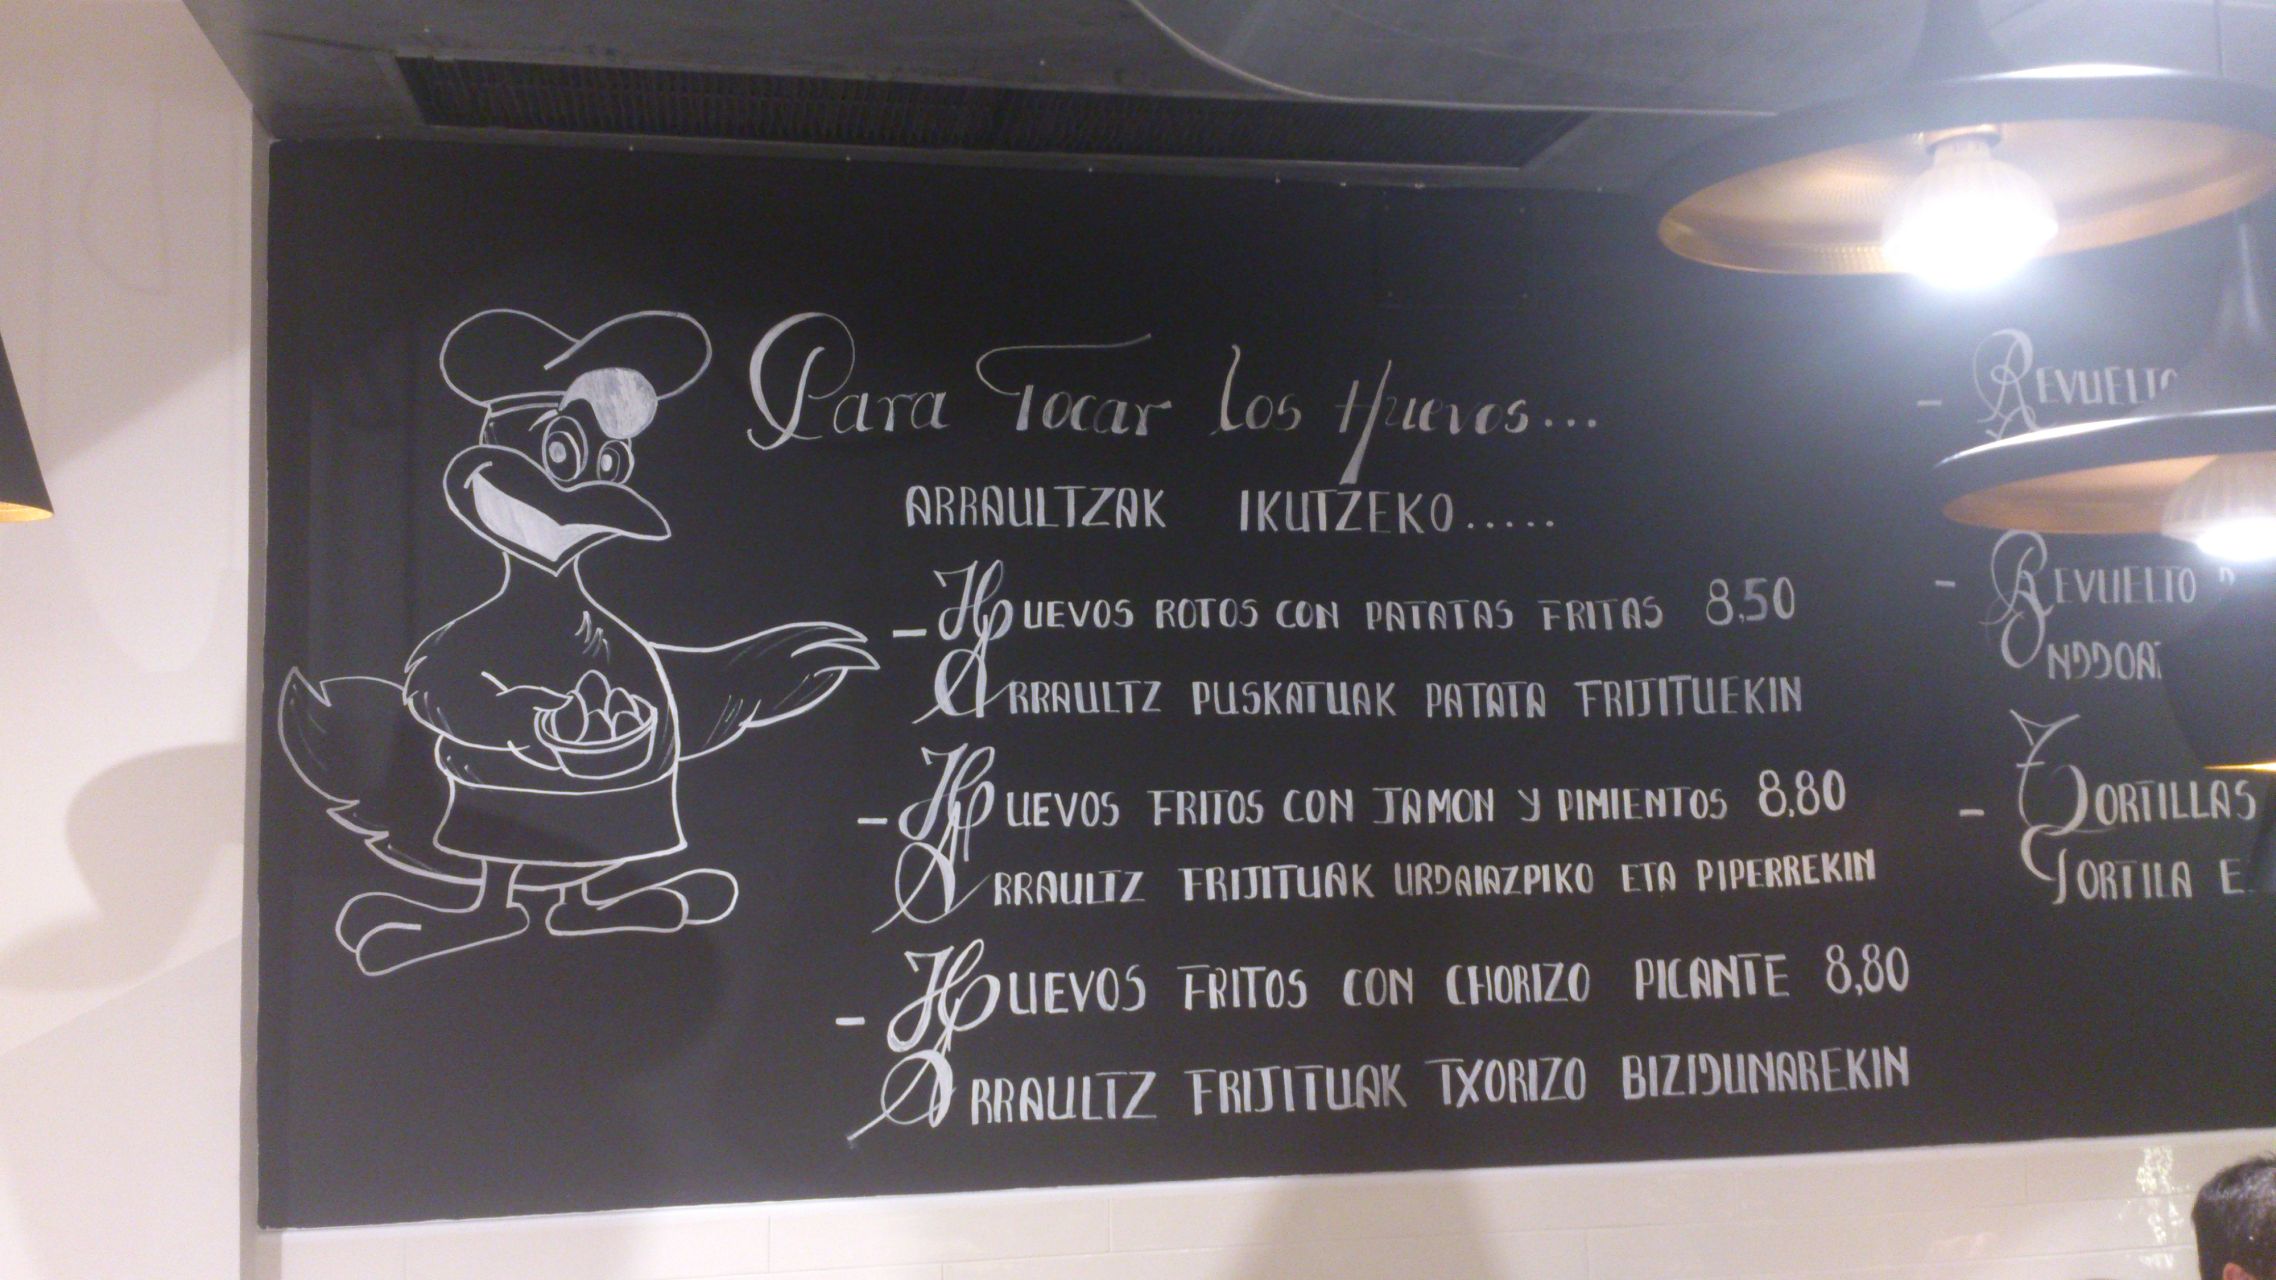 Para Tocar Los Huevos...
ARRAULTZAK IKUTZEKO.....
- HUEVOS ROTOS CON PATATAS FRITAS 8,50
ARRAULTZ PUSKATUAK PATATA FRIJITUEKIN
- HUEVOS FRITOS CON JAMON Y PIMIENTOS 8,80
ARRAULTZ FRIJITUAK URDAIAZPIKO ETA PIPERREKIN
- HUEVOS FRITOS CON CHORIZO PICANTE 8,80
ARRAULTZ FRIJITUAK TXORIZO BIZIDUNAREKIN
- REVUELTO
- REVUELTO
- TORTILLAS
TORTILA E